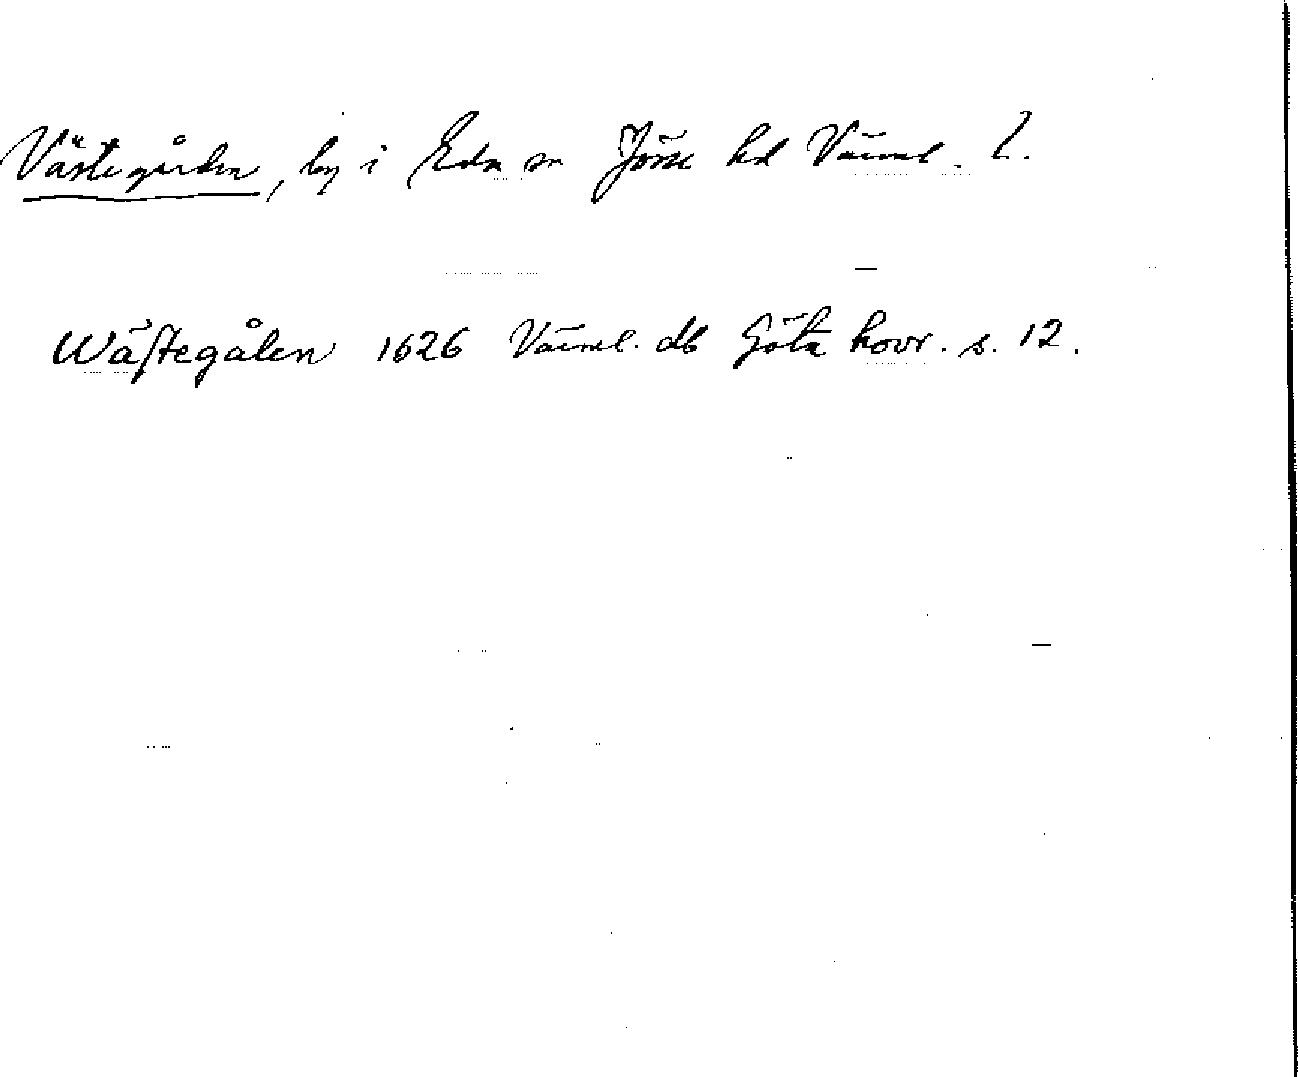 Västegården, by i Eda sn Jösse hd Värml. l.
Wästegålen 1626 Värml. db Göta hovr. s. 12.